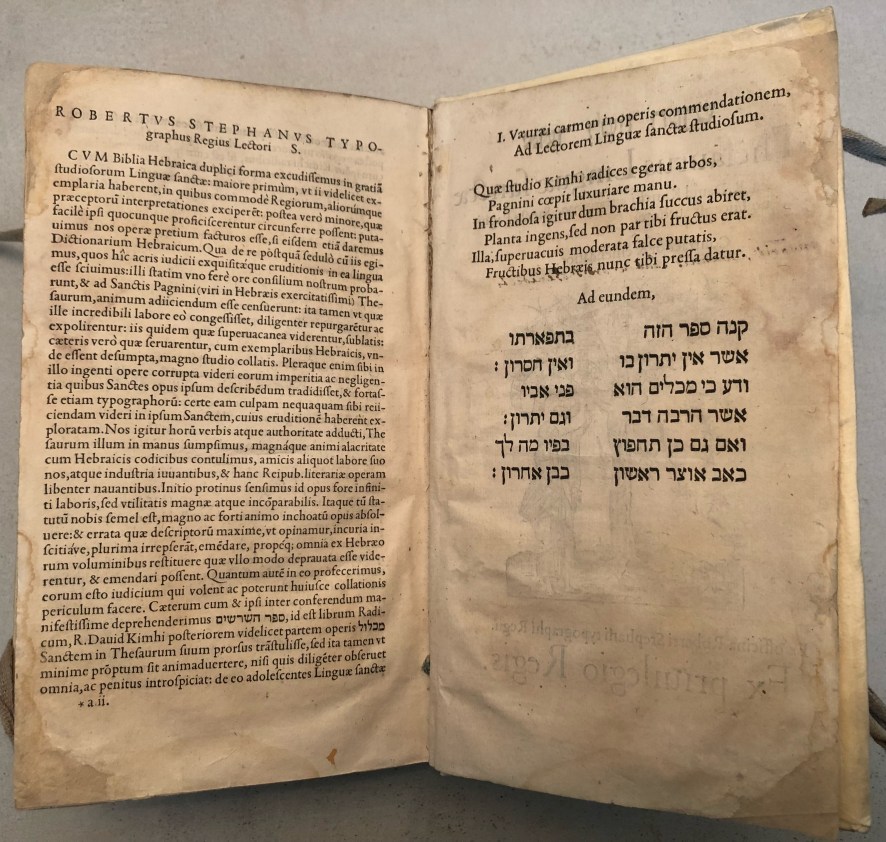 ROBERTVS STEPHANVS TYPO-
graphus Regius Lectori S.
CVM Biblia Hebraica duplici forma excudiſſemus in gratiā
ſtudioſorum Linguæ ſanctæ: maiore primùm, vt ii videlicet ex-
emplaria haberent, in quibus commodè Regiorum, aliorúmque
præceptorū interpretationes exciperēt: poſtea verò minore, quæ
facilè ipſi quocunque proficiſcerentur circunferre poſſent: puta-
uimus nos operæ pretium facturos eſſe, ſi eiſdem etiā daremus
Dictionarium Hebraicum. Qua de re pòſtquā ſedulò cū iis egi-
mus, quos hîc acris iudicii exquiſitæque eruditionis in ea lingua
eſſe ſciuimus: illi ſtatim vno ferè ore conſilium noſtrum proba-
runt, & ad Sanctis Pagnini (viri in Hebræis exercitatiſſimi) The-
ſaurum, animum adiiciendum eſſe cenſuerunt: ita tamen vt quæ
ille incredibili labore eò congeſſiſſet, diligenter repurgarētur ac
expolirentur: iis quidem quæ ſuperuacanea viderentur, ſublatis:
cæteris verò quæ ſeruarentur, cum exemplaribus Hebraicis, vn-
de eſſent deſumpta, magno ſtudio collatis. Pleraque enim ſibi in
illo ingenti opere corrupta videri eorum imperitia ac negligen-
tia quibus Sanctes opus ipſum deſcribēdum tradidiſſet, & fortaſ-
ſe etiam typographorū: certe eam culpam nequaquam ſibi reii-
ciendam videri in ipſum Sanctem, cuius eruditionē haberent ex-
ploratam. Nos igitur horū verbis atque authoritate adducti, The
ſaurum illum in manus ſumpſimus, magnáque animi alacritate
cum Hebraicis codicibus contulimus, amicis aliquot labore ſuo
nos, atque induſtria iuuantibus, & hanc Reipub. literariæ operam
libenter nauantibus. Initio protinus ſenſimus id opus fore infini-
ti laboris, ſed vtilitatis magnæ atque incōparabilis. Itaque tū ſta-
tutū nobis ſemel eſt, magno ac forti animo inchoatū opus abſol-
uere: & errata quæ deſcriptorū maxime, vt opinamur, incuria in-
ſcitiáve, plurima irrepſerāt, emēdare, propeq; omnia ex Hebræo
rum voluminibus reſtituere quæ vllo modo deprauata eſſe vide-
rentur, & emendari poſſent. Quantum autē in eo profecerimus,
eorum eſto iudicium qui volent ac poterunt huiuſce collationis
periculum facere. Cæterum cum & ipſi inter conferendum ma-
nifeſtiſſime deprehenderimus ספר השרשים, id eſt librum Radi-
cum, R. Dauid Kimhi poſteriorem videlicet partem operis מכלול
Sanctem in Theſaurum ſuum prorſus trāſtuliſſe, ſed ita tamen vt
minime prōptum ſit animaduertere, niſi quis diligēter obſeruet
omnia, ac penitus introſpiciat: de eo adoleſcentes Linguæ ſanctæ
*a ii.
I. Væuræi carmen in operis commendationem,
Ad Lectorem Linguæ ſanctæ ſtudioſum.
Quæ ſtudio Kimhi radices egerat arbos,
Pagnini cœpit luxuriare manu.
In frondoſa igitur dum brachia ſuccus abiret,
Planta ingens, ſed non par tibi fructus erat.
Illa, ſuperuacuis moderata falce putatis,
Fructibus Hebræis nunc tibi preſſa datur.
Ad eundem,
קנה ספר הזה בתפארתו
אשר אין יתרון בו ואין חסרון :
ודע כי מכלים הוא פני אביו
אשר הרבה דבר וגם יתרון :
ואם גם כן תחפוץ בפיו מה לך
כאב אוצר ראשון כבן אחרון :